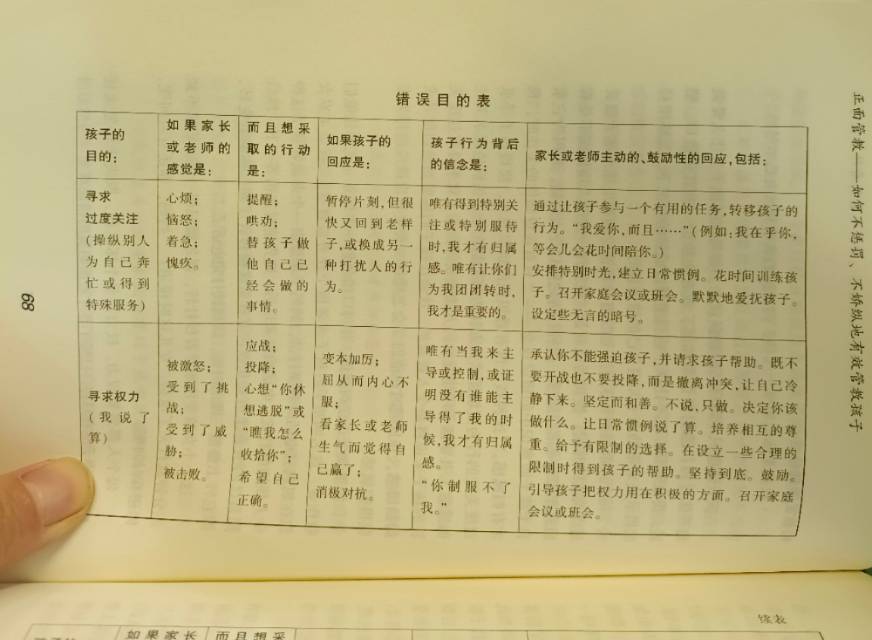 错误目的表
孩子的
目的：
如果家长
或老师的
感觉是：
而且想采
取的行动
是：
如果孩子的
回应是：
孩子行为背后
的信念是：
家长或老师主动的、鼓励性的回应，包括：
寻求
过度关注
（操纵别人
为自己奔
忙或得到
特殊服务）
心烦；
恼怒；
着急；
愧疚。
提醒；
哄劝；
替孩子做
他自己已
经会做的
事情。
暂停片刻，但很
快又回到老样
子，或换成另一
种打扰人的行
为。
唯有得到特别关
注或特别服侍
时，我才有归属
感。唯有让你们
为我团团转时，
我才是重要的。
通过让孩子参与一个有用的任务，转移孩子的
行为。“我爱你，而且……”（例如：我在乎你，
等会儿会花时间陪你。）
安排特别时光，建立日常惯例。花时间训练孩
子。召开家庭会议或班会。默默地爱抚孩子。
设定些无言的暗号。
寻求权力
（我说了
算）
被激怒；
受到了挑
战；
受到了威
胁；
被击败。
应战；
投降；
心想“你休
想逃脱”或
“瞧我怎么
收拾你”；
希望自己
正确。
变本加厉；
屈从而内心不
服；
看家长或老师
生气而觉得自
己赢了；
消极对抗。
唯有当我来主
导或控制，或证
明没有谁能主
导得了我的时
候，我才有归属
感。
“你制服不了
我。”
承认你不能强迫孩子，并请求孩子帮助。既不
要开战也不要投降，而是撤离冲突，让自己冷
静下来。坚定而和善。不说，只做。决定你该
做什么。让日常惯例说了算。培养相互的尊
重。给予有限制的选择。在设立一些合理的
限制时得到孩子的帮助。坚持到底。鼓励。
引导孩子把权力用在积极的方面。召开家庭
会议或班会。
正面管教——如何不惩罚、不娇纵地有效管教孩子
68
续表
如果家长
而且想采